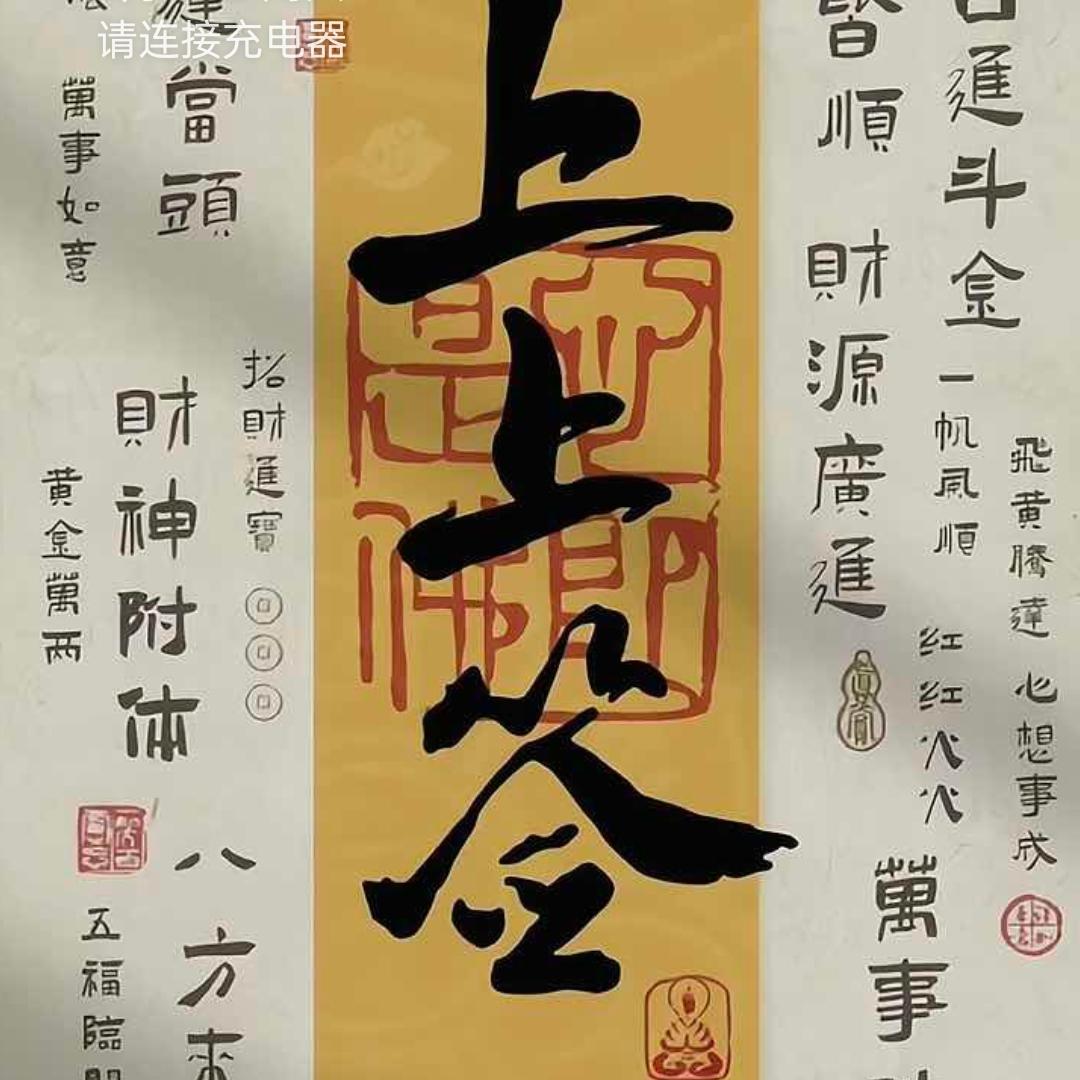 请连接充电器
日進斗金
一帆風順
红红火火
飛黄騰達
心想事成
皆順
財源廣進
萬事
上上签
心即是佛
招財進寶
當頭
財神附体
八方来
萬事如意
黄金萬两
五福臨門